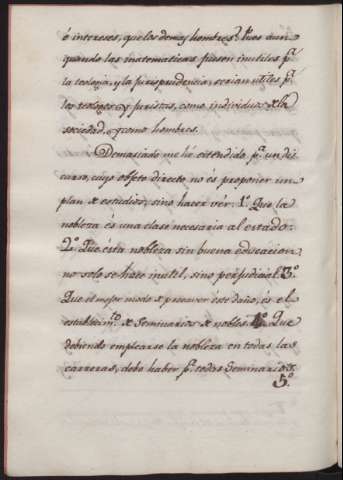 é intereses, que los demas hombres? Pues aun
quando las matematicas fuesen inutiles p.a
la teologia, y la jurisprudencia, serian utiles p.a
los teologos, y juristas, como individuos de la
sociedad, y como hombres.
Demasiado me hé estendido p.a un dis
curso, cuyo objeto directo no és proponer un
plan de estudios, sino hacer vér: 1.o Que la
nobleza és una clase necesaria al estado:
2.o Que ésta nobleza sin buena educacion,
no solo se hace inutil, sino perjudicial: 3.o
Que el mejor modo de precaver éste daño, es el
establecim.to de Seminarios de nobles. 4.o Que
debiendo emplearse la nobleza en todas las
carreras, debe haber p.a todas Seminarios.
5.o